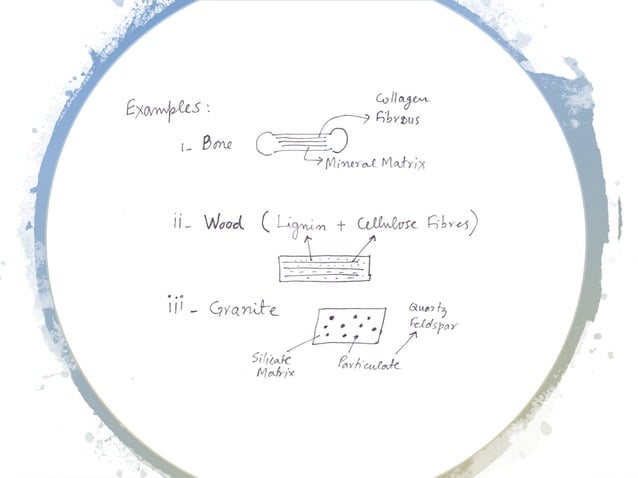 Examples:
i- Bone
Collagen
Fibrous
Mineral Matrix
ii- Wood (Lignin + Cellulose Fibres)
iii- Granite
Quartz
Feldspar
Silicate
Matrix
Particulate